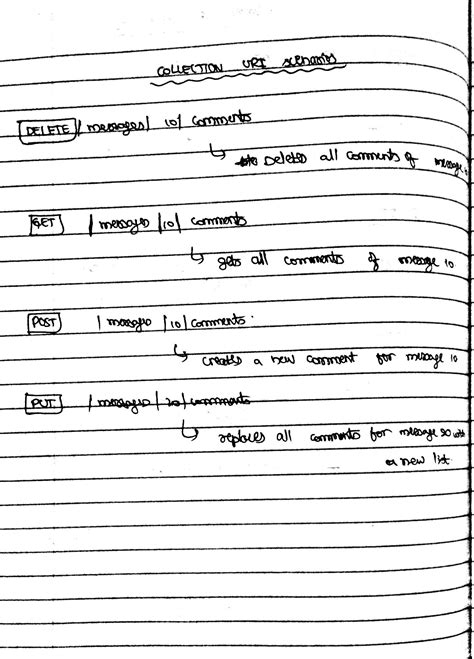 COLLECTION URI scenarios
DELETE / messages / 10 / comments
↳ Deletes all comments of message
GET / messages / 10 / comments
↳ gets all comments of message 10
POST / messages / 10 / comments.
↳ creates a new comment for message 10
PUT / messages / 20 / comments
↳ replaces all comments for message 20 with
a new list